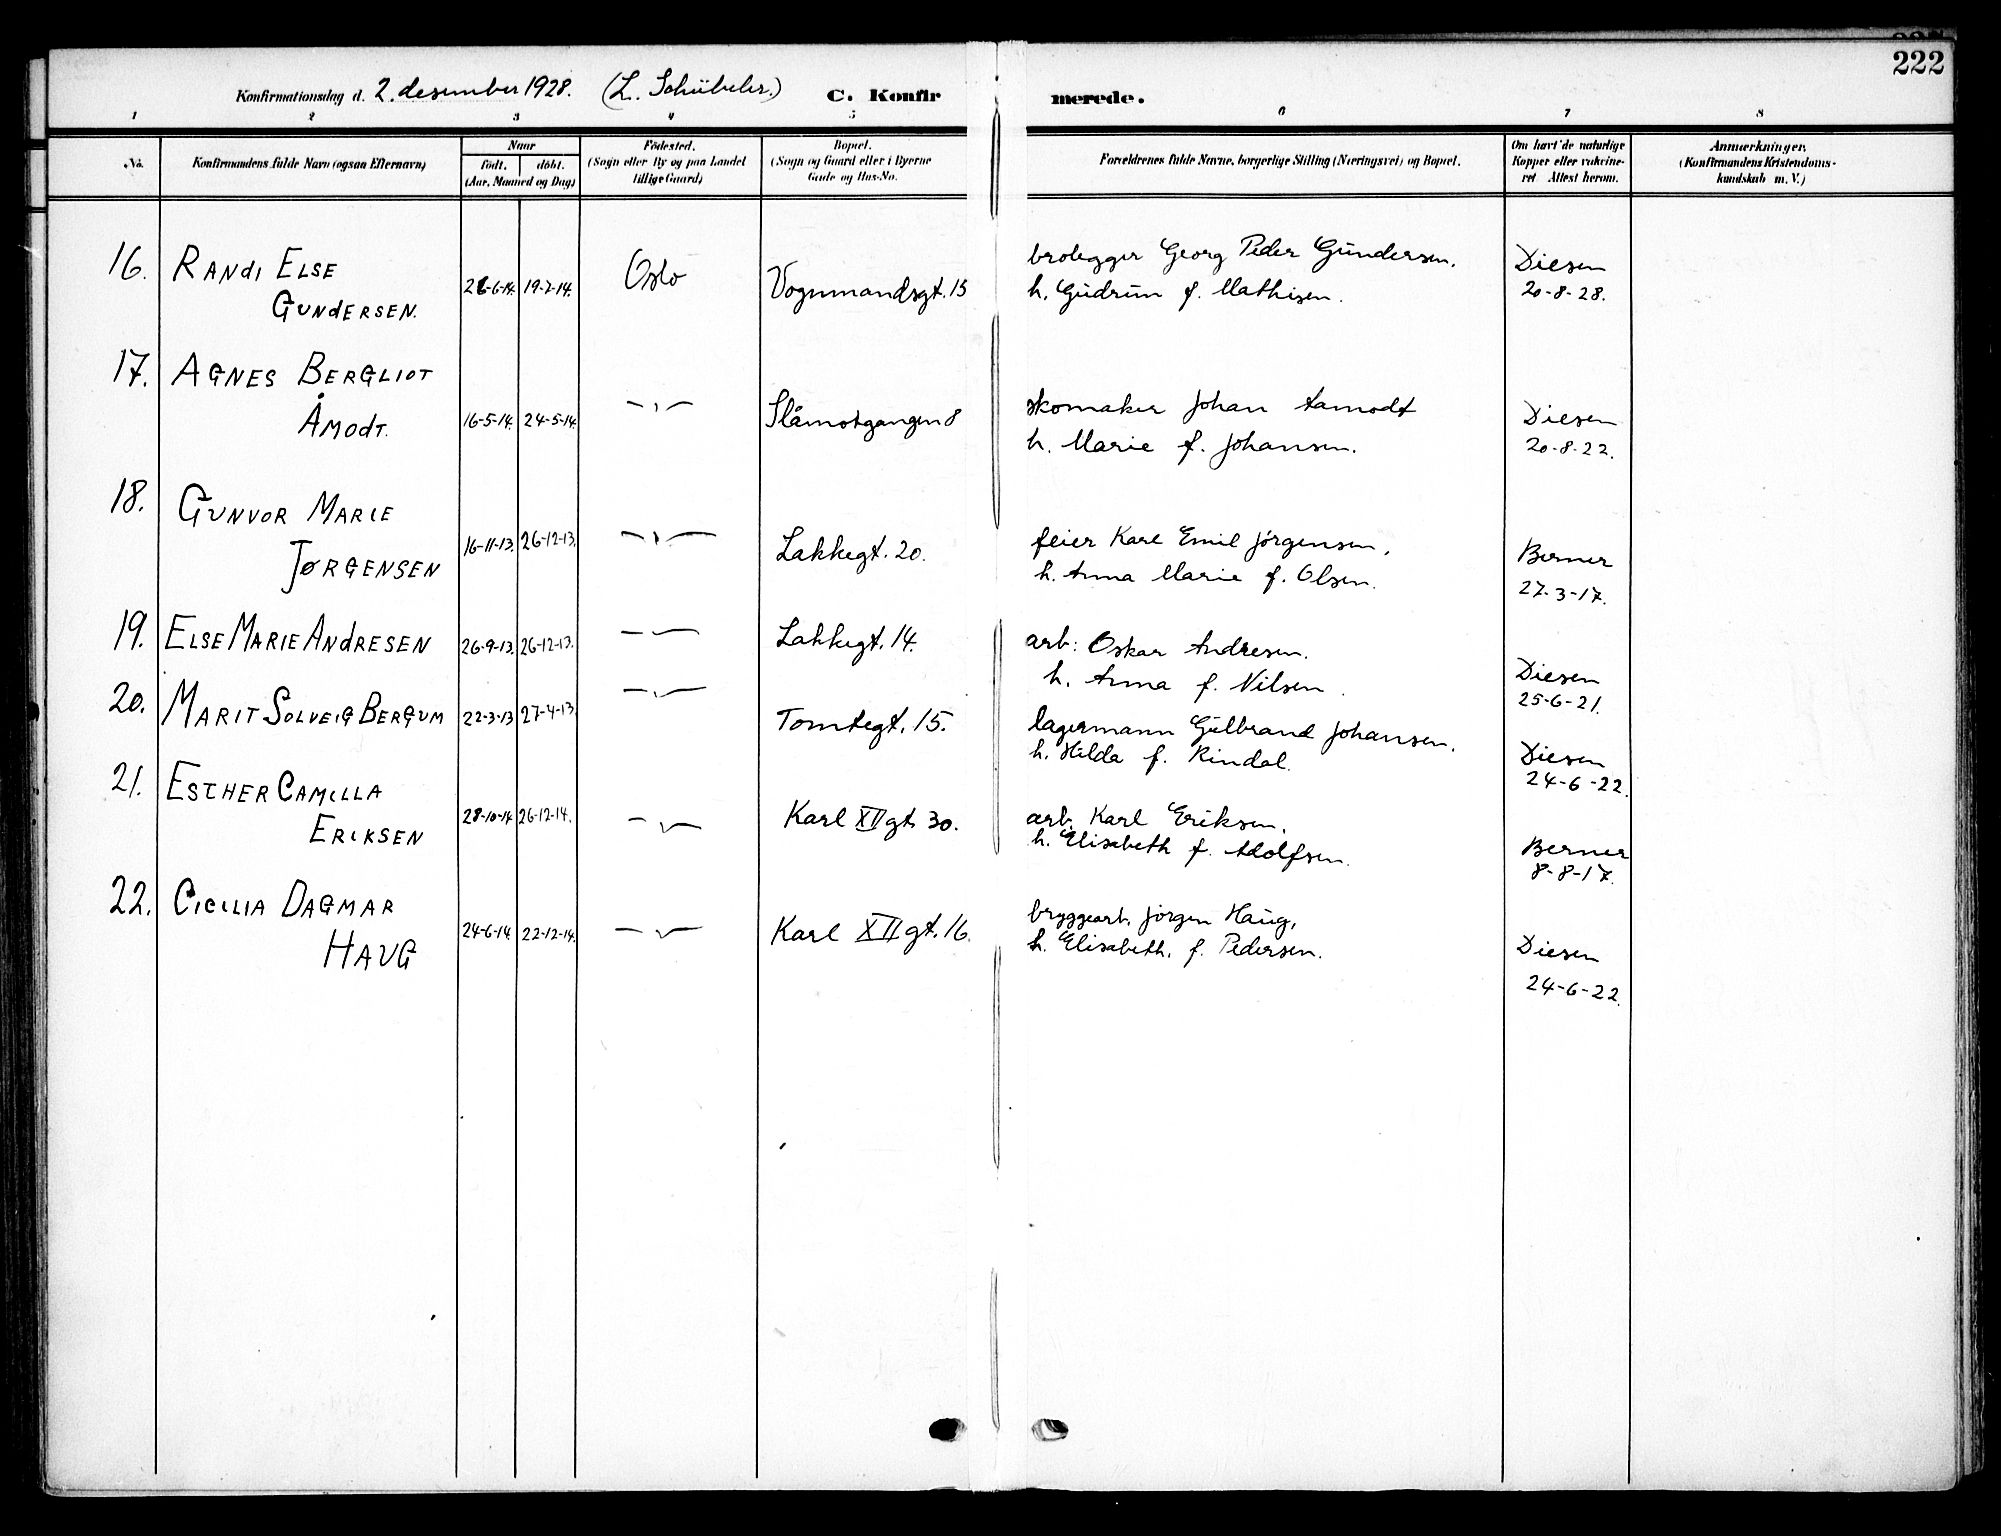 222
Konfirmationsdag d. 2. desember 1928. (L. Schübeler.) C. Konfir merede.
1 2 3 4 5 6 7 8
No. Konfirmandens fulde Navn (ogsaa Efternavn) Naar født. døbt. (Aar, Maaned og Dag) Fødested. (Sogn eller By og paa Landet tillige Gaard) Bopæl. (Sogn og Gaard eller i Byerne Gade og Hus-No. Forældrenes fulde Navne, borgerlige Stilling (Næringsvei) og Bopæl. Om havt de naturlige Kopper eller vaksineret Attest herom. Anmærkninger. (Konfirmandens Kristendomskundskab m. V.)
16. RANDI ELSE Oslo brolegger Georg Peder Gundersen. Diesen
GUNDERSEN. 26-6-14. 19-7-14. Vognmandsgt. 15 h. Gudrun f. Mathisen. 20-8-28.
17. AGNES BERGLIOT
ÅMODT. 16-5-14. 24-5-14. -"- Slåmotgangen 8 skomaker Johan Aamodt Diesen
h. Marie f. Johansen. 20-8-22.
18. GUNVOR MARIE
JØRGENSEN 16-11-13. 26-12-13. -"- Lakkegt. 20. feier Karl Emil Jörgensen, Berner
h. Anna Marie f. Olsen. 27-3-17.
19. ELSE MARIE ANDRESEN 26-9-13. 26-12-13. -"- Lakkegt. 14. arb: Oskar Andresen. Diesen
h. Anna f. Nilsen. 25-6-21.
20. MARIT SOLVEIG BERGUM 22-3-13 27-4-13. -"- Tomtegt. 15. lagermann Gulbrand Johansen. Diesen
h. Hilda f. Rindal. 24-6-22.
21. ESTHER CAMILLA
ERIKSEN 28-10-14 26-12-14. -"- Karl XII gt. 30. arb. Karl Eriksen. Berner
h. Elisabeth f. Adolfsen. 8-8-17.
22. CICILIA DAGMAR
HAUG 24-6-14 22-12-14. -"- Karl XII gt. 16. bryggearb. Jörgen Haug, Diesen
h. Elisabeth. f. Pedersen. 24-6-22.